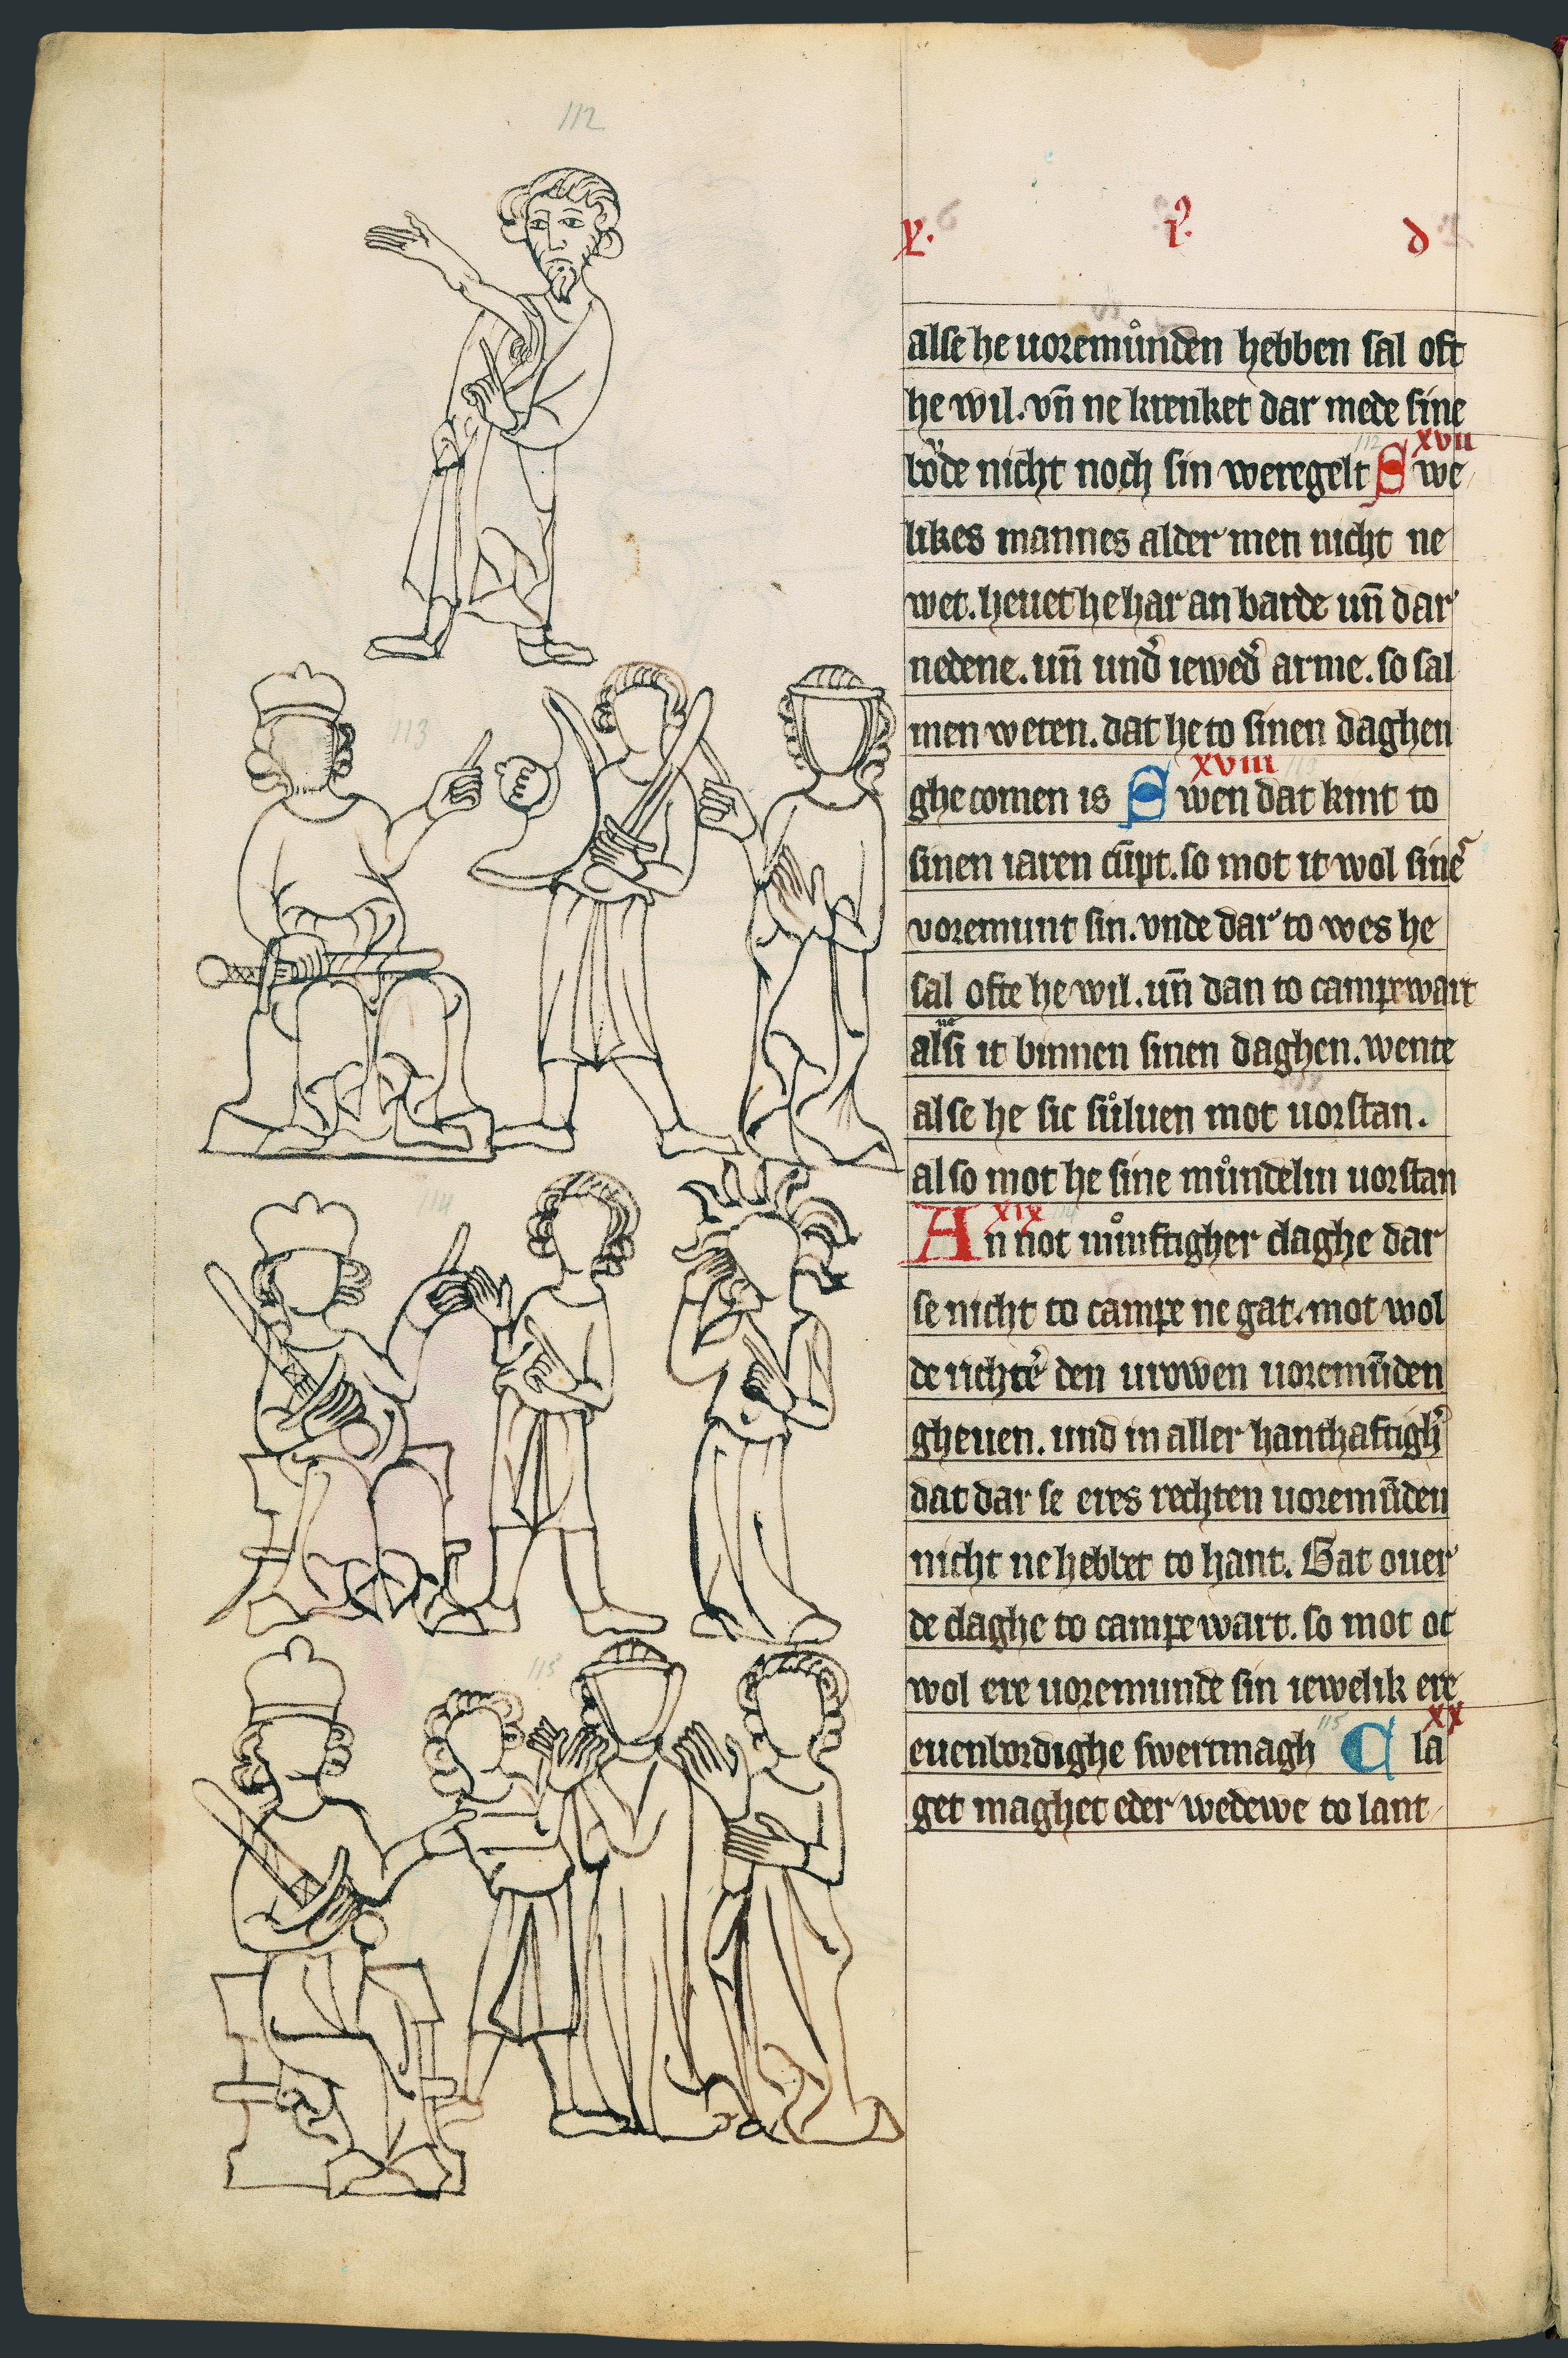 112
x. i.ꝰ d
alse he uoremůnden hebben sal oft
he wil. vn̄ ne krenket dar mede sine
bo̊de nicht noch sin weregelt S we
xvii
likes mannes alder men nicht ne
wet. heuet he har an barde un̄ dar
nedene. un̄ und̓ iewed̓ arme. so sal
men weten. dat he to sinen daghen
xviii
ghe comen is S wen dat kint to
sinen iaren cūpt. so mot it wol sine͛
voremunt sin. vnde dar to wes he
sal ofte he wil. un̄ dan to campewart
alsi it binnen sinen daghen. wente
al se he sic sůluen mot uorstan.
al so mot he sine můndelin uorstan
xix
An not nůnftigher claghe dar
se nicht to campe ne gat. mot wol
de richte͛ den urowen uoremūden
gheuen. und in aller hanthaftigh͛
dat dar se eres rechten uoremūden
nicht ne hebbet to hant. Gat ouer
de claghe to campe wart. so mot oc
wol ere uoremunde sin iewelik ere
xx
euenbordighe swertmagh C la
get maghet eder wedewe to lant
113
114
115